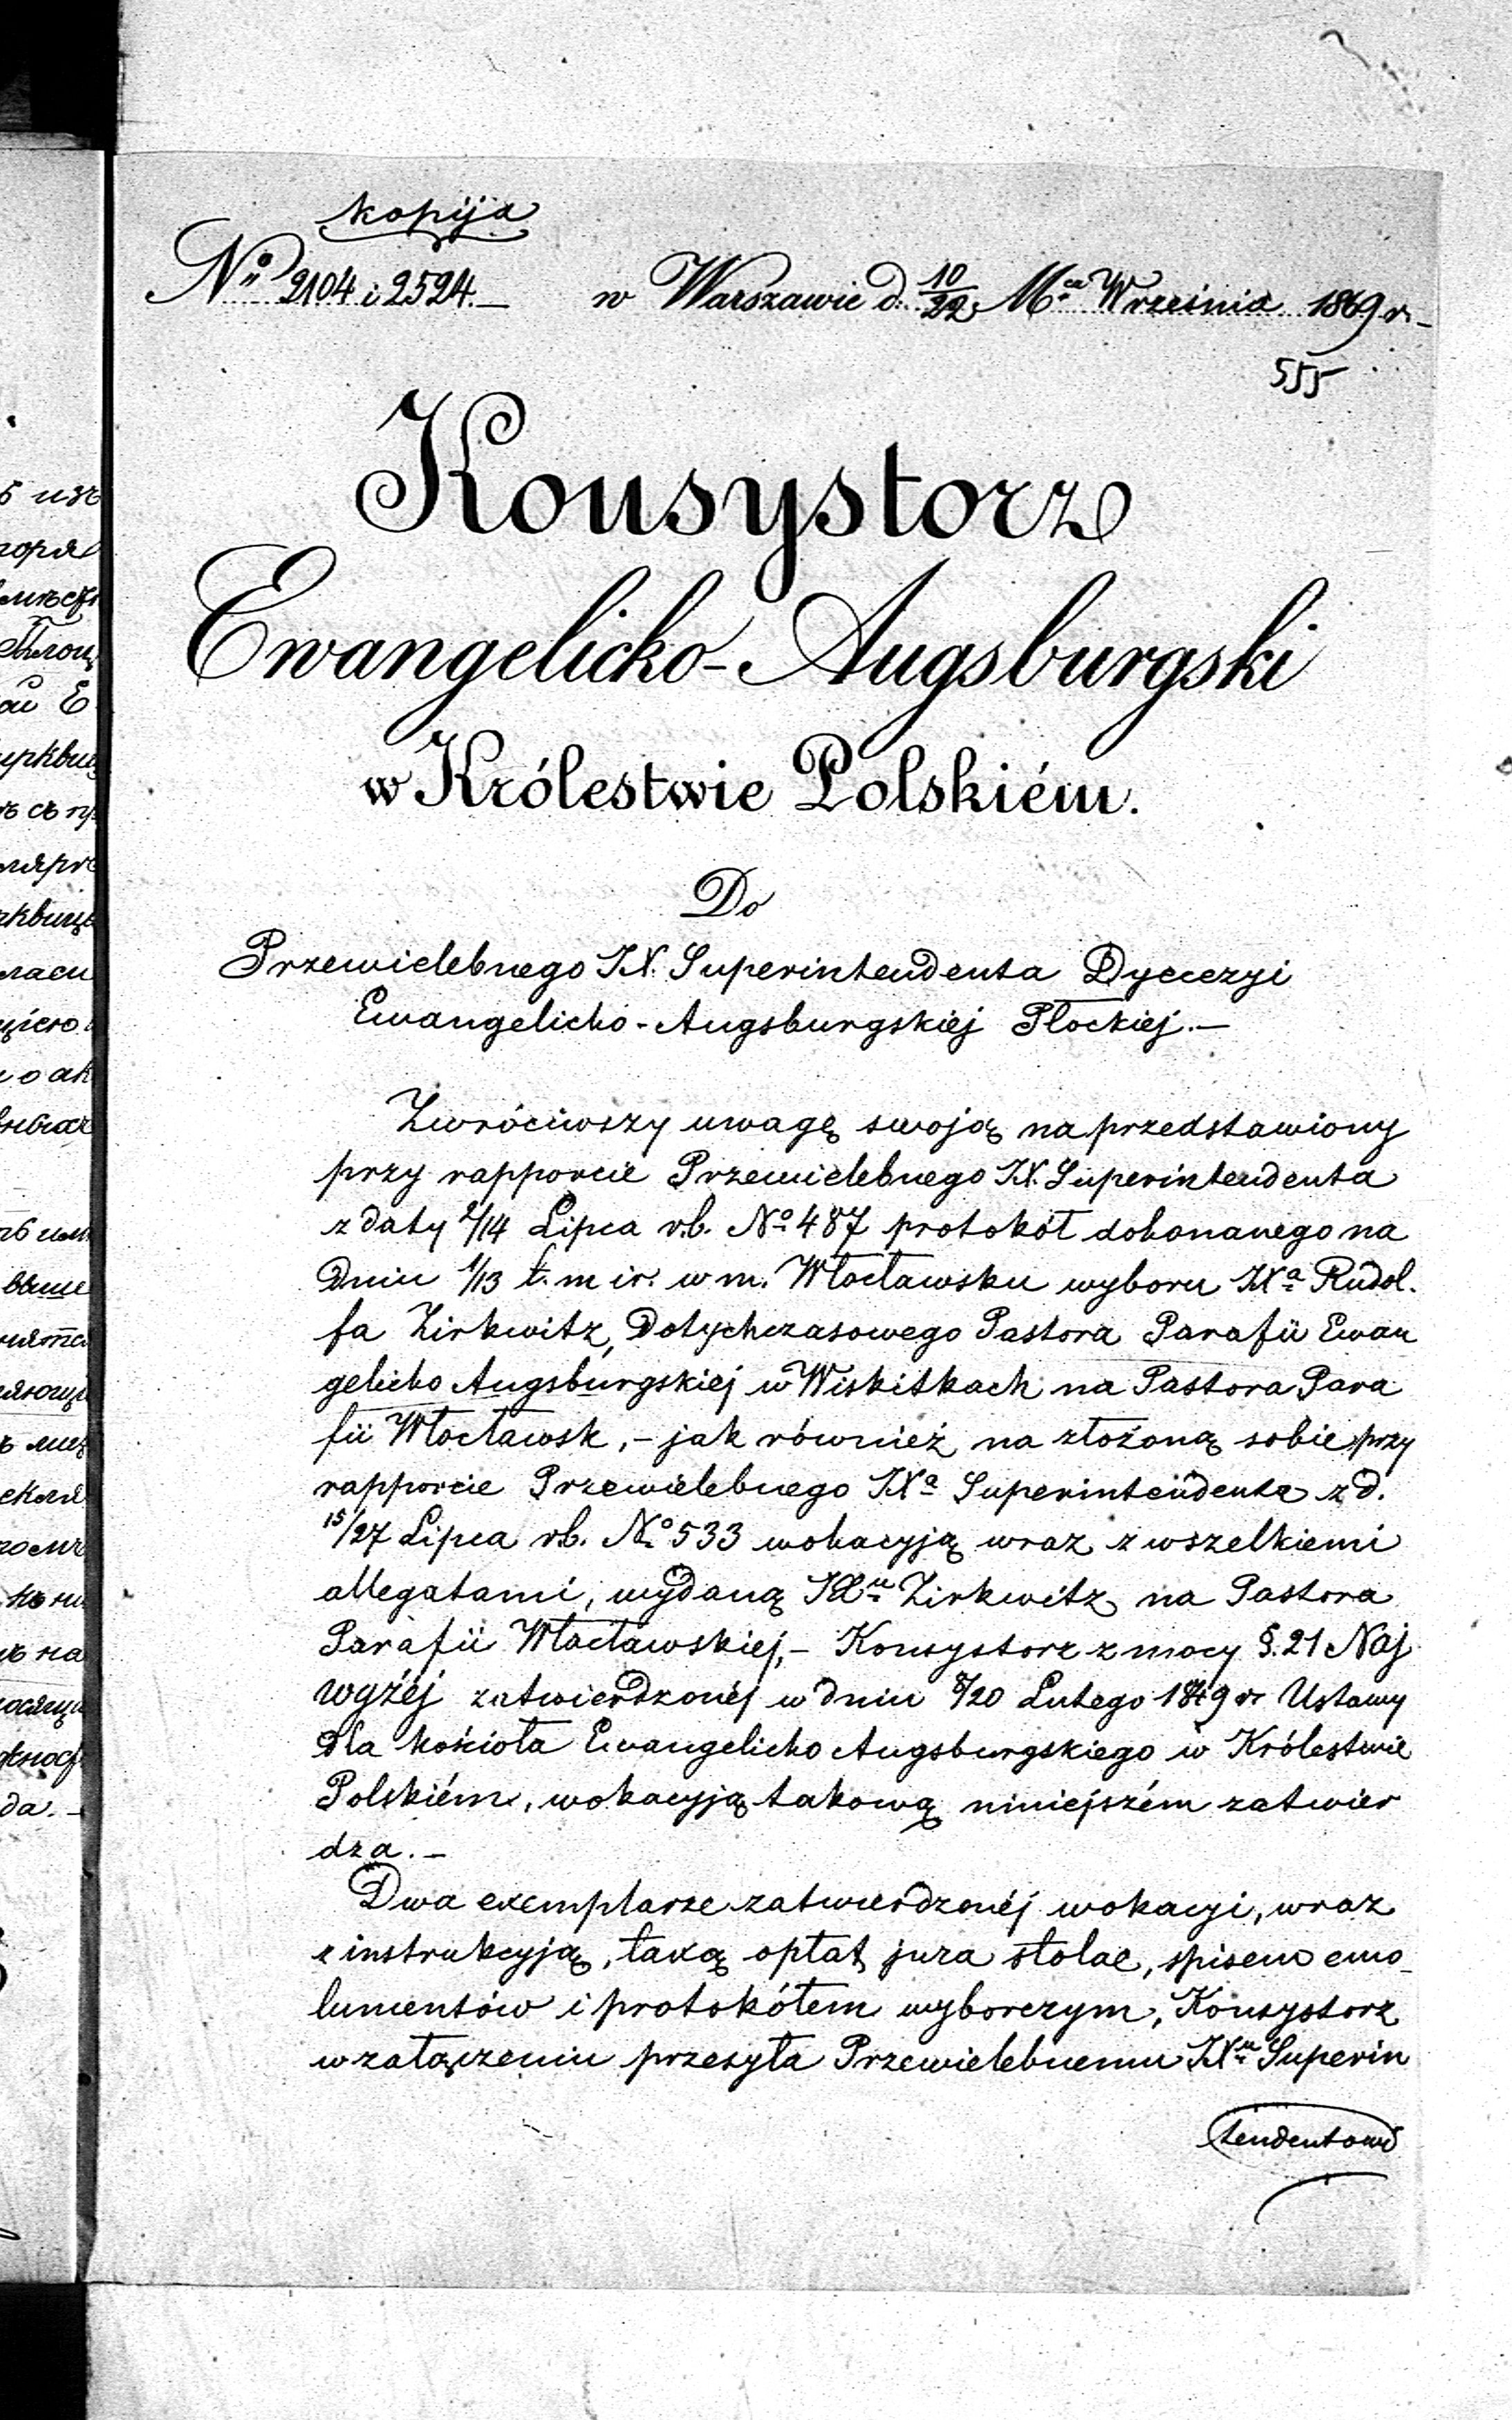 kopija
No 2104 i 2524.— w Warszawie d. 10/22 Mca Września 1869 r.—
555
Konsystorz
Ewangelicko-Augsburgski
w Królestwie Polskiém.
Do
Przewielebnego JX. Superintendenta Dyecezyi
Ewangelicko-Augsburgskiej Płockiej.—
Zwróciwszy uwagę swoją na przedstawiony
przy rapporcie Przewielebnego JX. Superintendenta
z daty 2/14 Lipca r.b. No 487 protokół dokonanego na
dniu 1/13 t. m i r. w m. Włocławsku wyboru JXa Rudol.
fa Zirkwitz, dotychczasowego Pastora Parafii Ewan
gelicko Augsburgskiej w Wiskitkach na Pastora Para
fii Włocławsk, – jak również na złożoną sobie przy
rapporcie Przewielebnego JXa Superintendenta z d.
15/27 Lipca r.b. No 533 wokacyją wraz z wszelkiemi
allegatami, wydaną JXu Zirkwitz na Pastora
Parafii Włocławskiej, – Konsystorz z mocy §. 21 Naj
wyżéj zatwierdzonéj w dniu 8/20 Lutego 1849 r. Ustawy
dla kościoła Ewangelicko Augsburgskiego w Królestwie
Polskiém, wokacyją takową niniejszém zatwier
dza. –
Dwa exemplarze zatwierdzonéj wokacyi, wraz
z instrukcyją, taxą opłat jura stolae, spisem emo-
lumentów i protokółem wyborczym, Konsystorz
w załączeniu przesyła Przewielebnemu JXu Superin
tendentowi